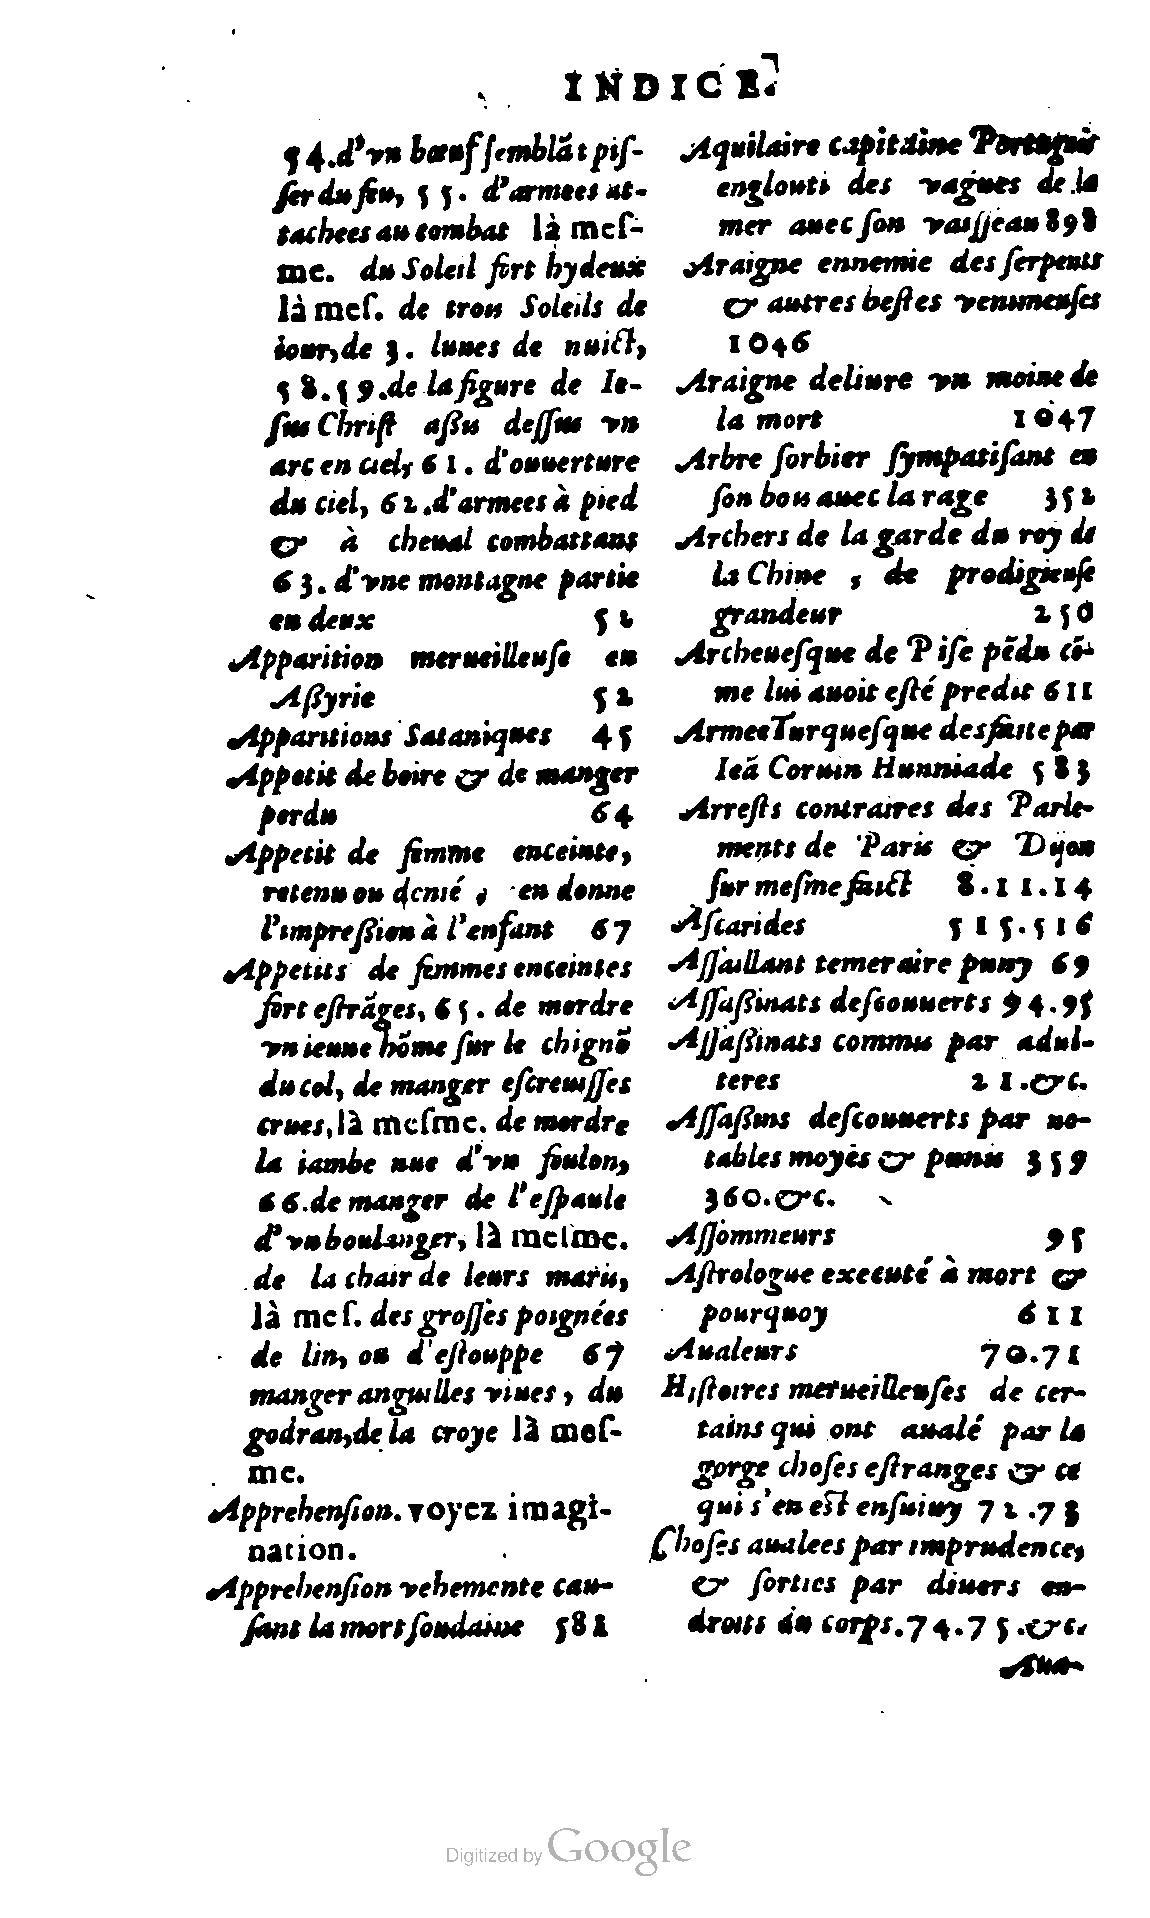 INDICE.
54.d'vn bœuf semblãt pis-
ser du feu, 55. d'armees at-
tachees au combat là mes-
me. du Soleil fort hydeux
là mes. de trois Soleils de
iour, de 3. lunes de nuict,
58.59.de la figure de Ie-
sus Christ aßis dessus vn
arc en ciel, 61. d'ouuerture
du ciel, 62.d'armees à pied
& à cheual combattans
63. d'vne montagne partie
en deux 52
Apparition merueilleuse en
Aßyrie 52
Apparitions Sataniques 45
Appetit de boire & de manger
perdu 64
Appetit de femme enceinte,
retenu ou denié, en donne
l'impreßion à l'enfant 67
Appetits de femmes enceintes
fort estrãges, 65. de mordre
vn ieune hõme sur le chignõ
du col, de manger escreuisses
crues, là mesme. de mordre
la iambe nue d'vn foulon,
66.de manger de l'espaule
d'vn boulanger, là mesme.
de la chair de leurs maris,
là mes. des grosses poignées
de lin, ou d'estouppe 67
manger anguilles viues, du
godran, de la croye là mes-
me.
Apprehension. voyez imagi-
nation.
Apprehension vehemente cau-
sant la mort soudaine 581
Aquilaire capitaine Portuguis
englouti des vagues de la
mer auec son vaisseau 898
Araigne ennemie des serpents
& autres bestes venimeuses
1046
Araigne deliure vn moine de
la mort 1047
Arbre sorbier sympatisant en
son bois auec la rage 352
Archers de la garde du roy de
la Chine, de prodigieuse
grandeur 250
Archeuesque de Pise pẽdu cõ-
me lui auoit esté predit 611
Armee Turquesque desfaite par
Ieã Coruin Hunniade 583
Arrests contraires des Parle-
ments de Paris & Dijon
sur mesme faict 8.11.14
Ascarides 515.516
Assaillant temeraire puny 69
Assaßinats descouuerts 94.95
Assaßinats commis par adul-
teres 21.&c.
Assaßins descouuerts par no-
tables moyẽs & punis 359
360.&c.
Assommeurs 95
Astrologue executé à mort &
pourquoy 611
Aualeurs 70.71
Histoires merueilleuses de cer-
tains qui ont aualé par la
gorge choses estranges & ce
qui s'en est ensuiuy 72.73
Choses aualees par imprudence,
& sorties par diuers en-
droits du corps.74.75.&c.
Aua-
Digitized by Google